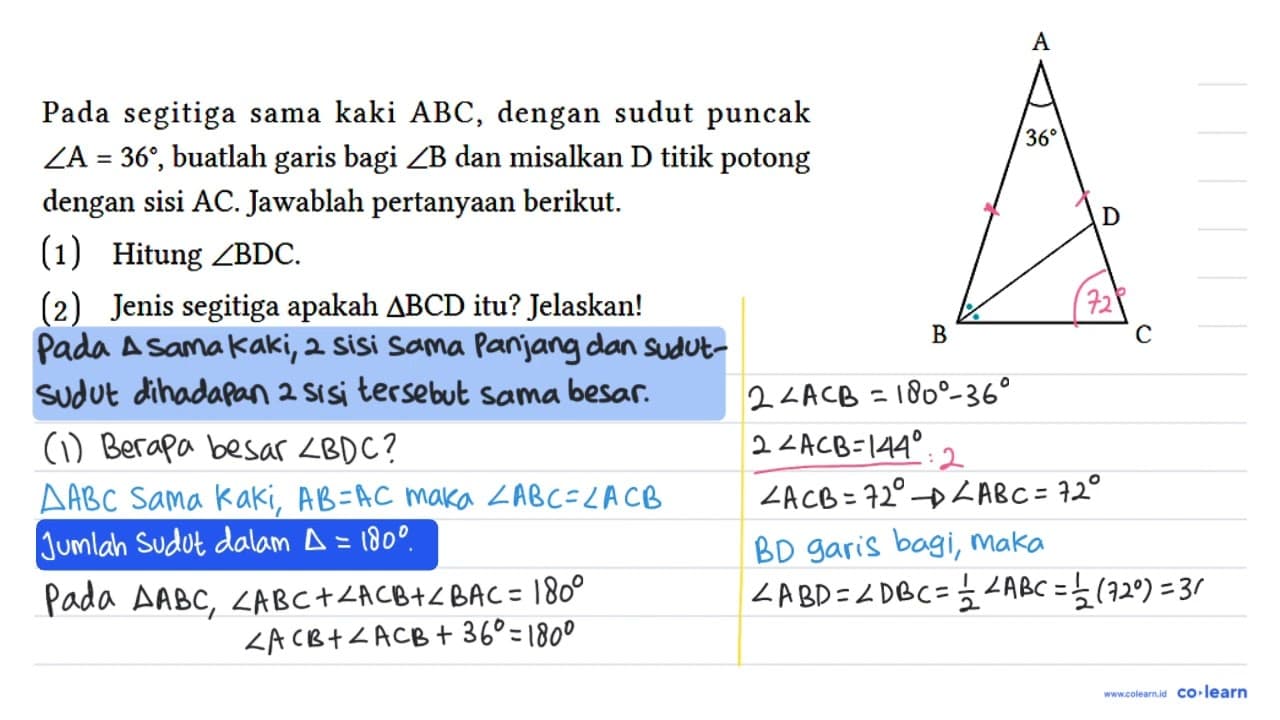 Pada segitiga sama kaki ABC, dengan sudut puncak
∠A = 36°, buatlah garis bagi ∠B dan misalkan D titik potong
dengan sisi AC. Jawablah pertanyaan berikut.
(1) Hitung ∠BDC.
(2) Jenis segitiga apakah ΔBCD itu? Jelaskan!
Pada Δ sama kaki, 2 sisi sama panjang dan sudut-
sudut dihadapan 2 sisi tersebut sama besar.
(1) Berapa besar ∠BDC?
ΔABC sama kaki, AB=AC maka ∠ABC=∠ACB
Jumlah sudut dalam Δ = 180°.
Pada ΔABC, ∠ABC+∠ACB+∠BAC=180°
∠ACB+∠ACB+36°=180°
A
36°
D
72°
B
C
2∠ACB=180°-36°
2∠ACB=144°
:2
∠ACB=72°→∠ABC=72°
BD garis bagi, maka
∠ABD=∠DBC=1/2∠ABC=1/2(72°)=3
www.colearn.id co·learn